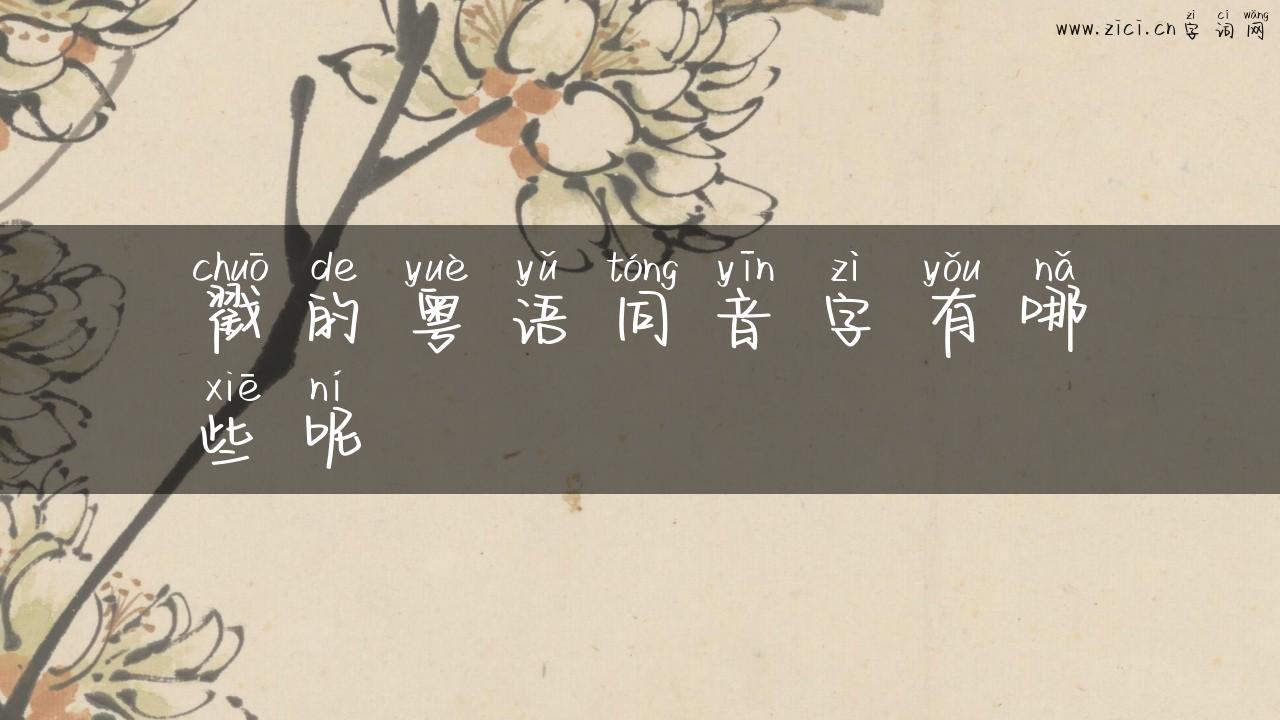 zì cí wǎng
www.zici.cn 字词网
chuō de yuè yǔ tóng yīn zì yǒu nǎ
戳的粤语同音字有哪
xiē ní
些呢